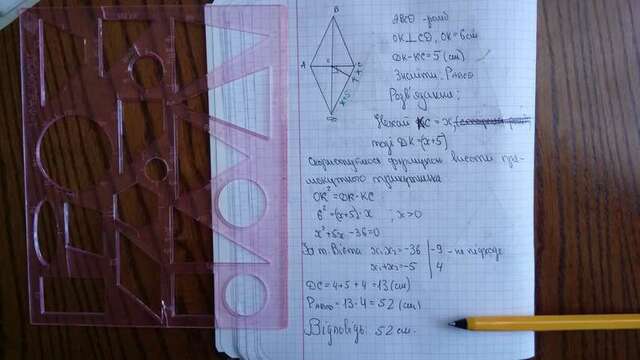 B
ABCD - ромб
OK⊥CD, OK = 6 см
DK-KC = 5 (см)
Знайти: P ABCD
Розв'язання:
A
C
Нехай KC = x,
тоді DK - (x+5)
Скористуємося формулою висоти пря-
мокутного трикутника
OK² = DK·KC
6² = (x+5)·x ; x>0
x²+5x-36=0
За т. Вієта x₁x₂ = -36 | -9 - не підходе
x₁+x₂ = -5 | 4
DC = 4+5+4 = 13 (см)
P ABCD = 13·4 = 52 (см)
Відповідь: 52 см.